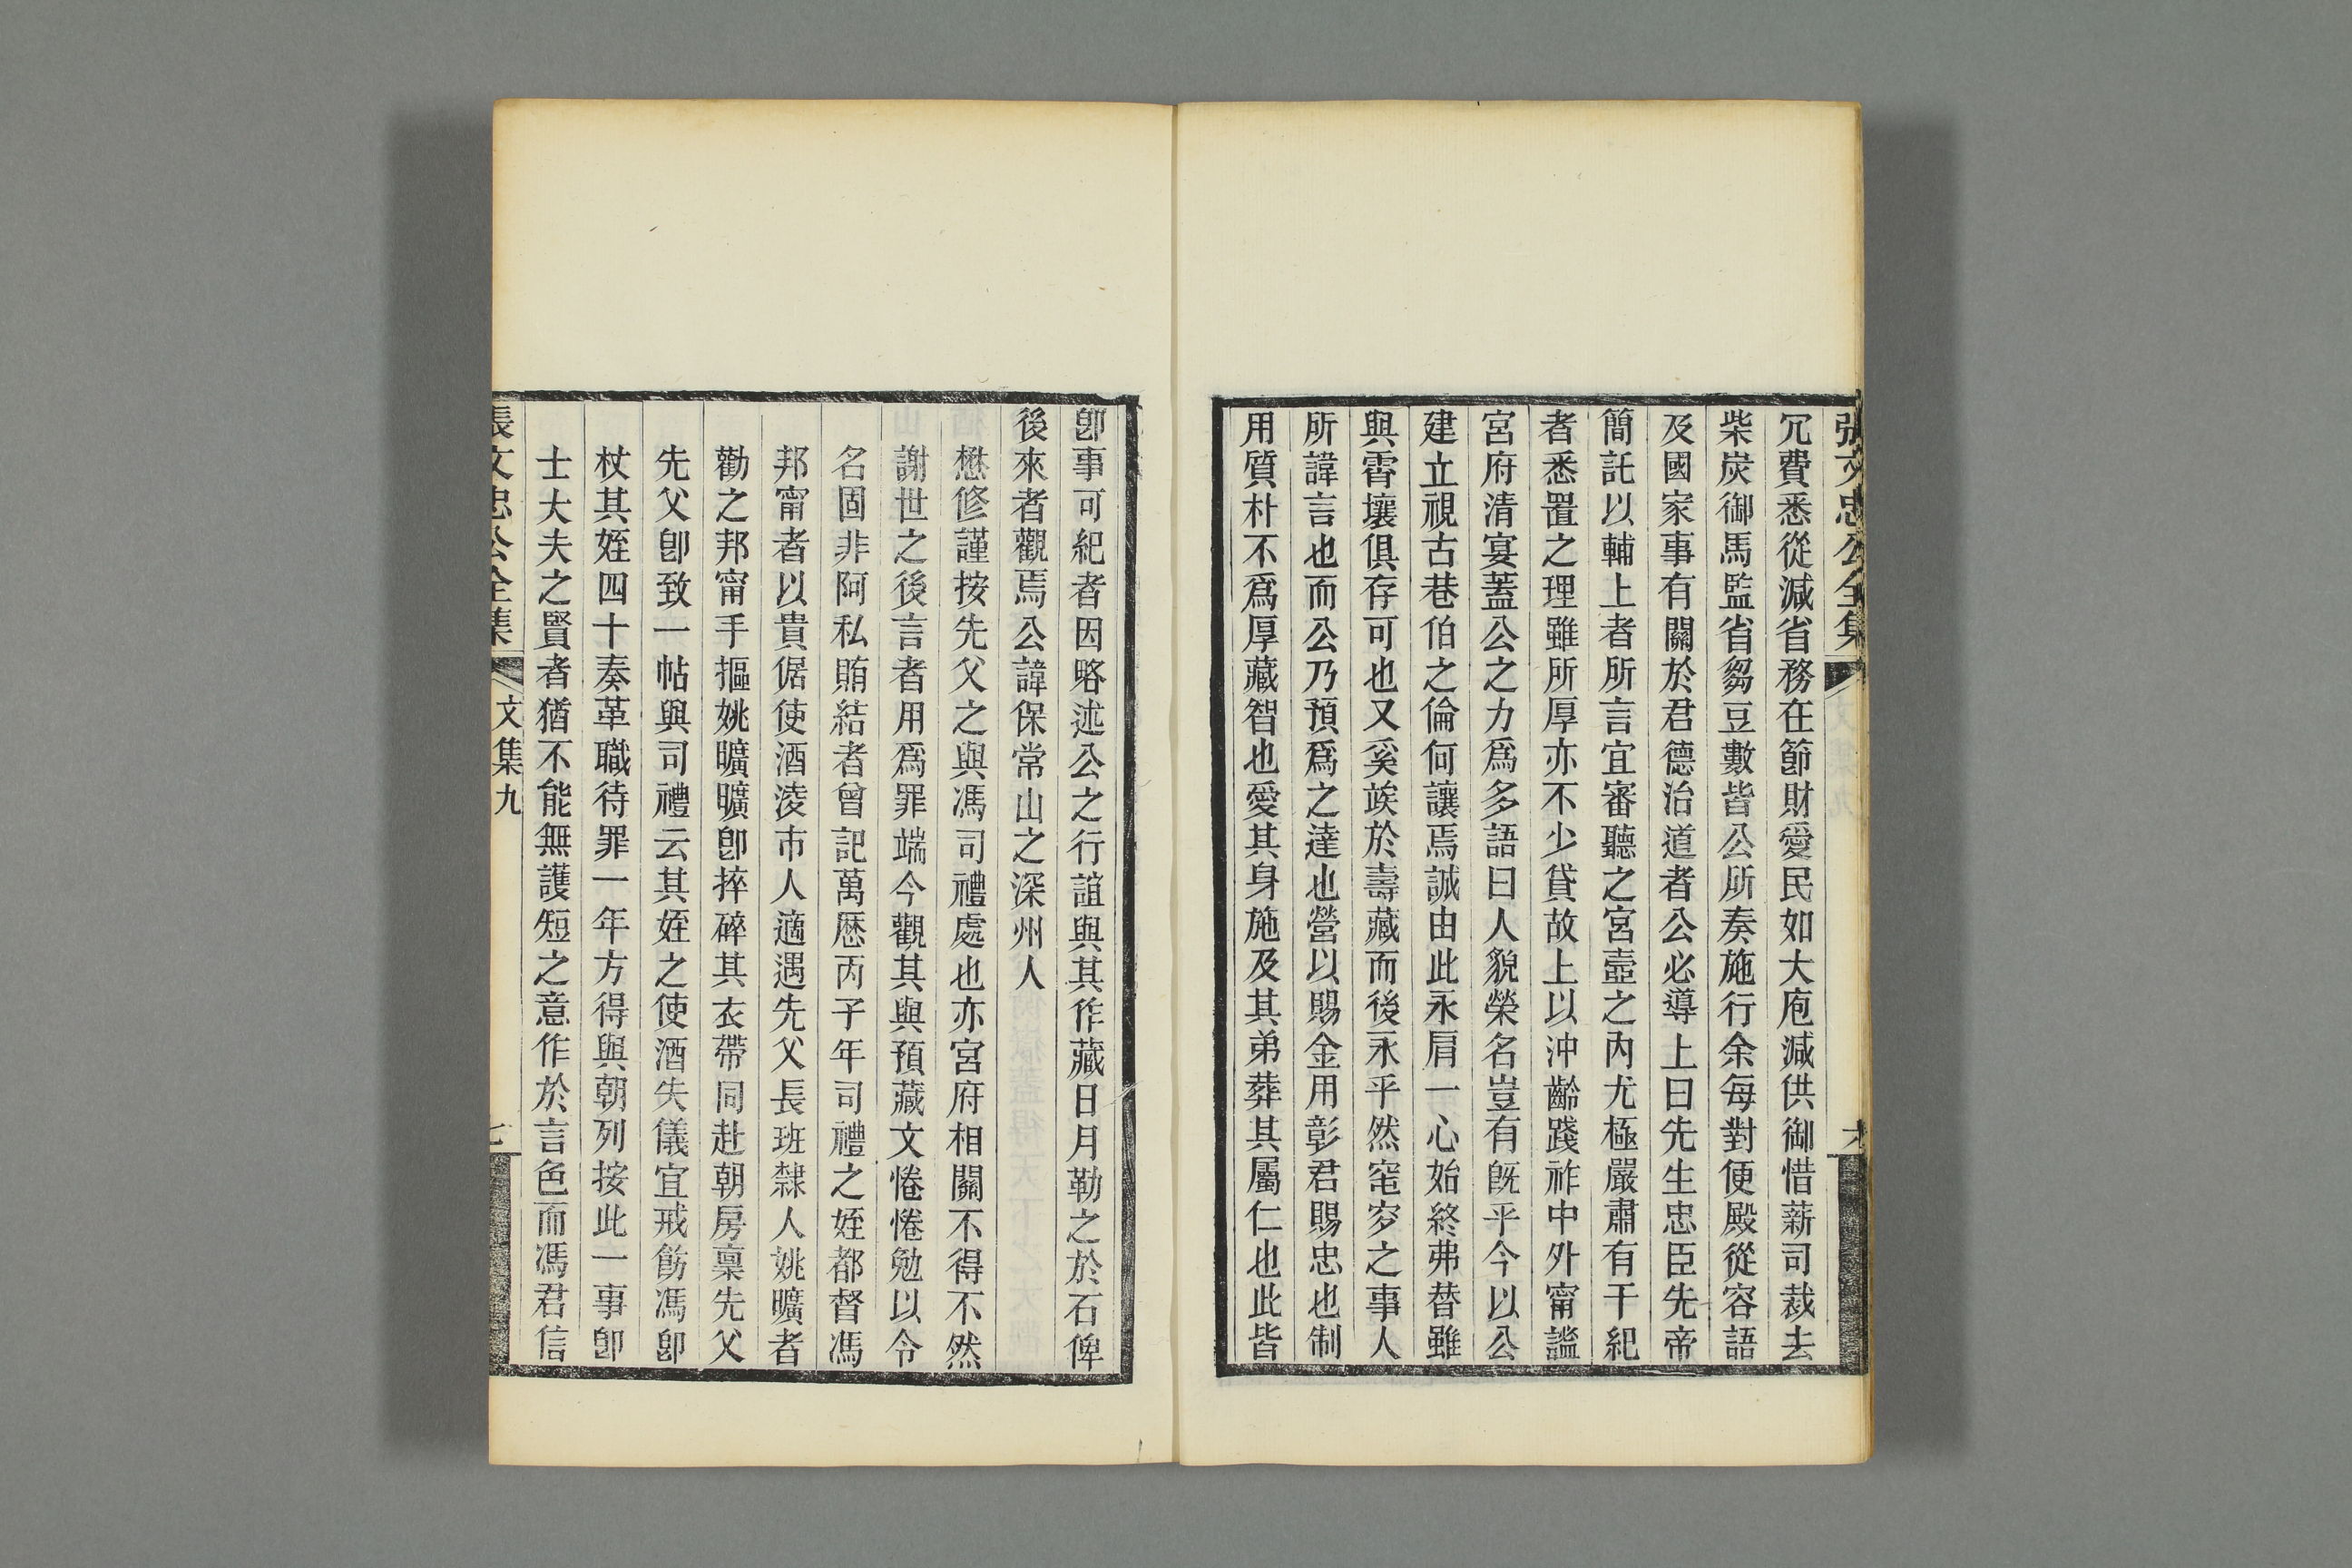 張文忠公全集
冗費悉從減省務在節財愛民如大庖減供御惜薪司裁去
柴炭御馬監省芻豆數皆公所奏施行余每對便殿從容語
及國家事有關於君德治道者公必導上曰先生忠臣先帝
簡託以輔上者所言宜審聽之宮壼之內尤極嚴肅有干紀
者悉置之理雖所厚亦不少貸故上以沖齡踐祚中外甯謐
宮府清宴蓋公之力爲多語曰人貌榮名豈有旣乎今以公
建立視古巷伯之倫何讓焉誠由此永肩一心始終弗替雖
與霄壤俱存可也又奚竢於壽藏而後永乎然窀穸之事人
所諱言也而公乃預爲之達也營以賜金用彰君賜忠也制
用質朴不爲厚藏智也愛其身施及其弟葬其屬仁也此皆
卽事可紀者因略述公之行誼與其作藏日月勒之於石俾
後來者觀焉公諱保常山之深州人
懋修謹按先父之與馮司禮處也亦宮府相關不得不然
謝世之後言者用爲罪端今觀其與預藏文惓惓勉以令
名固非阿私賄結者曾記萬歷丙子年司禮之姪都督馮
邦甯者以貴倨使酒淩市人適遇先父長班隸人姚曠者
勸之邦甯手摳姚曠曠卽捽碎其衣帶同赴朝房稟先父
先父卽致一帖與司禮云其姪之使酒失儀宜戒飭馮卽
杖其姪四十奏革職待罪一年方得與朝列按此一事卽
士大夫之賢者猶不能無護短之意作於言色而馮君信
張文忠公全集
文集九
七